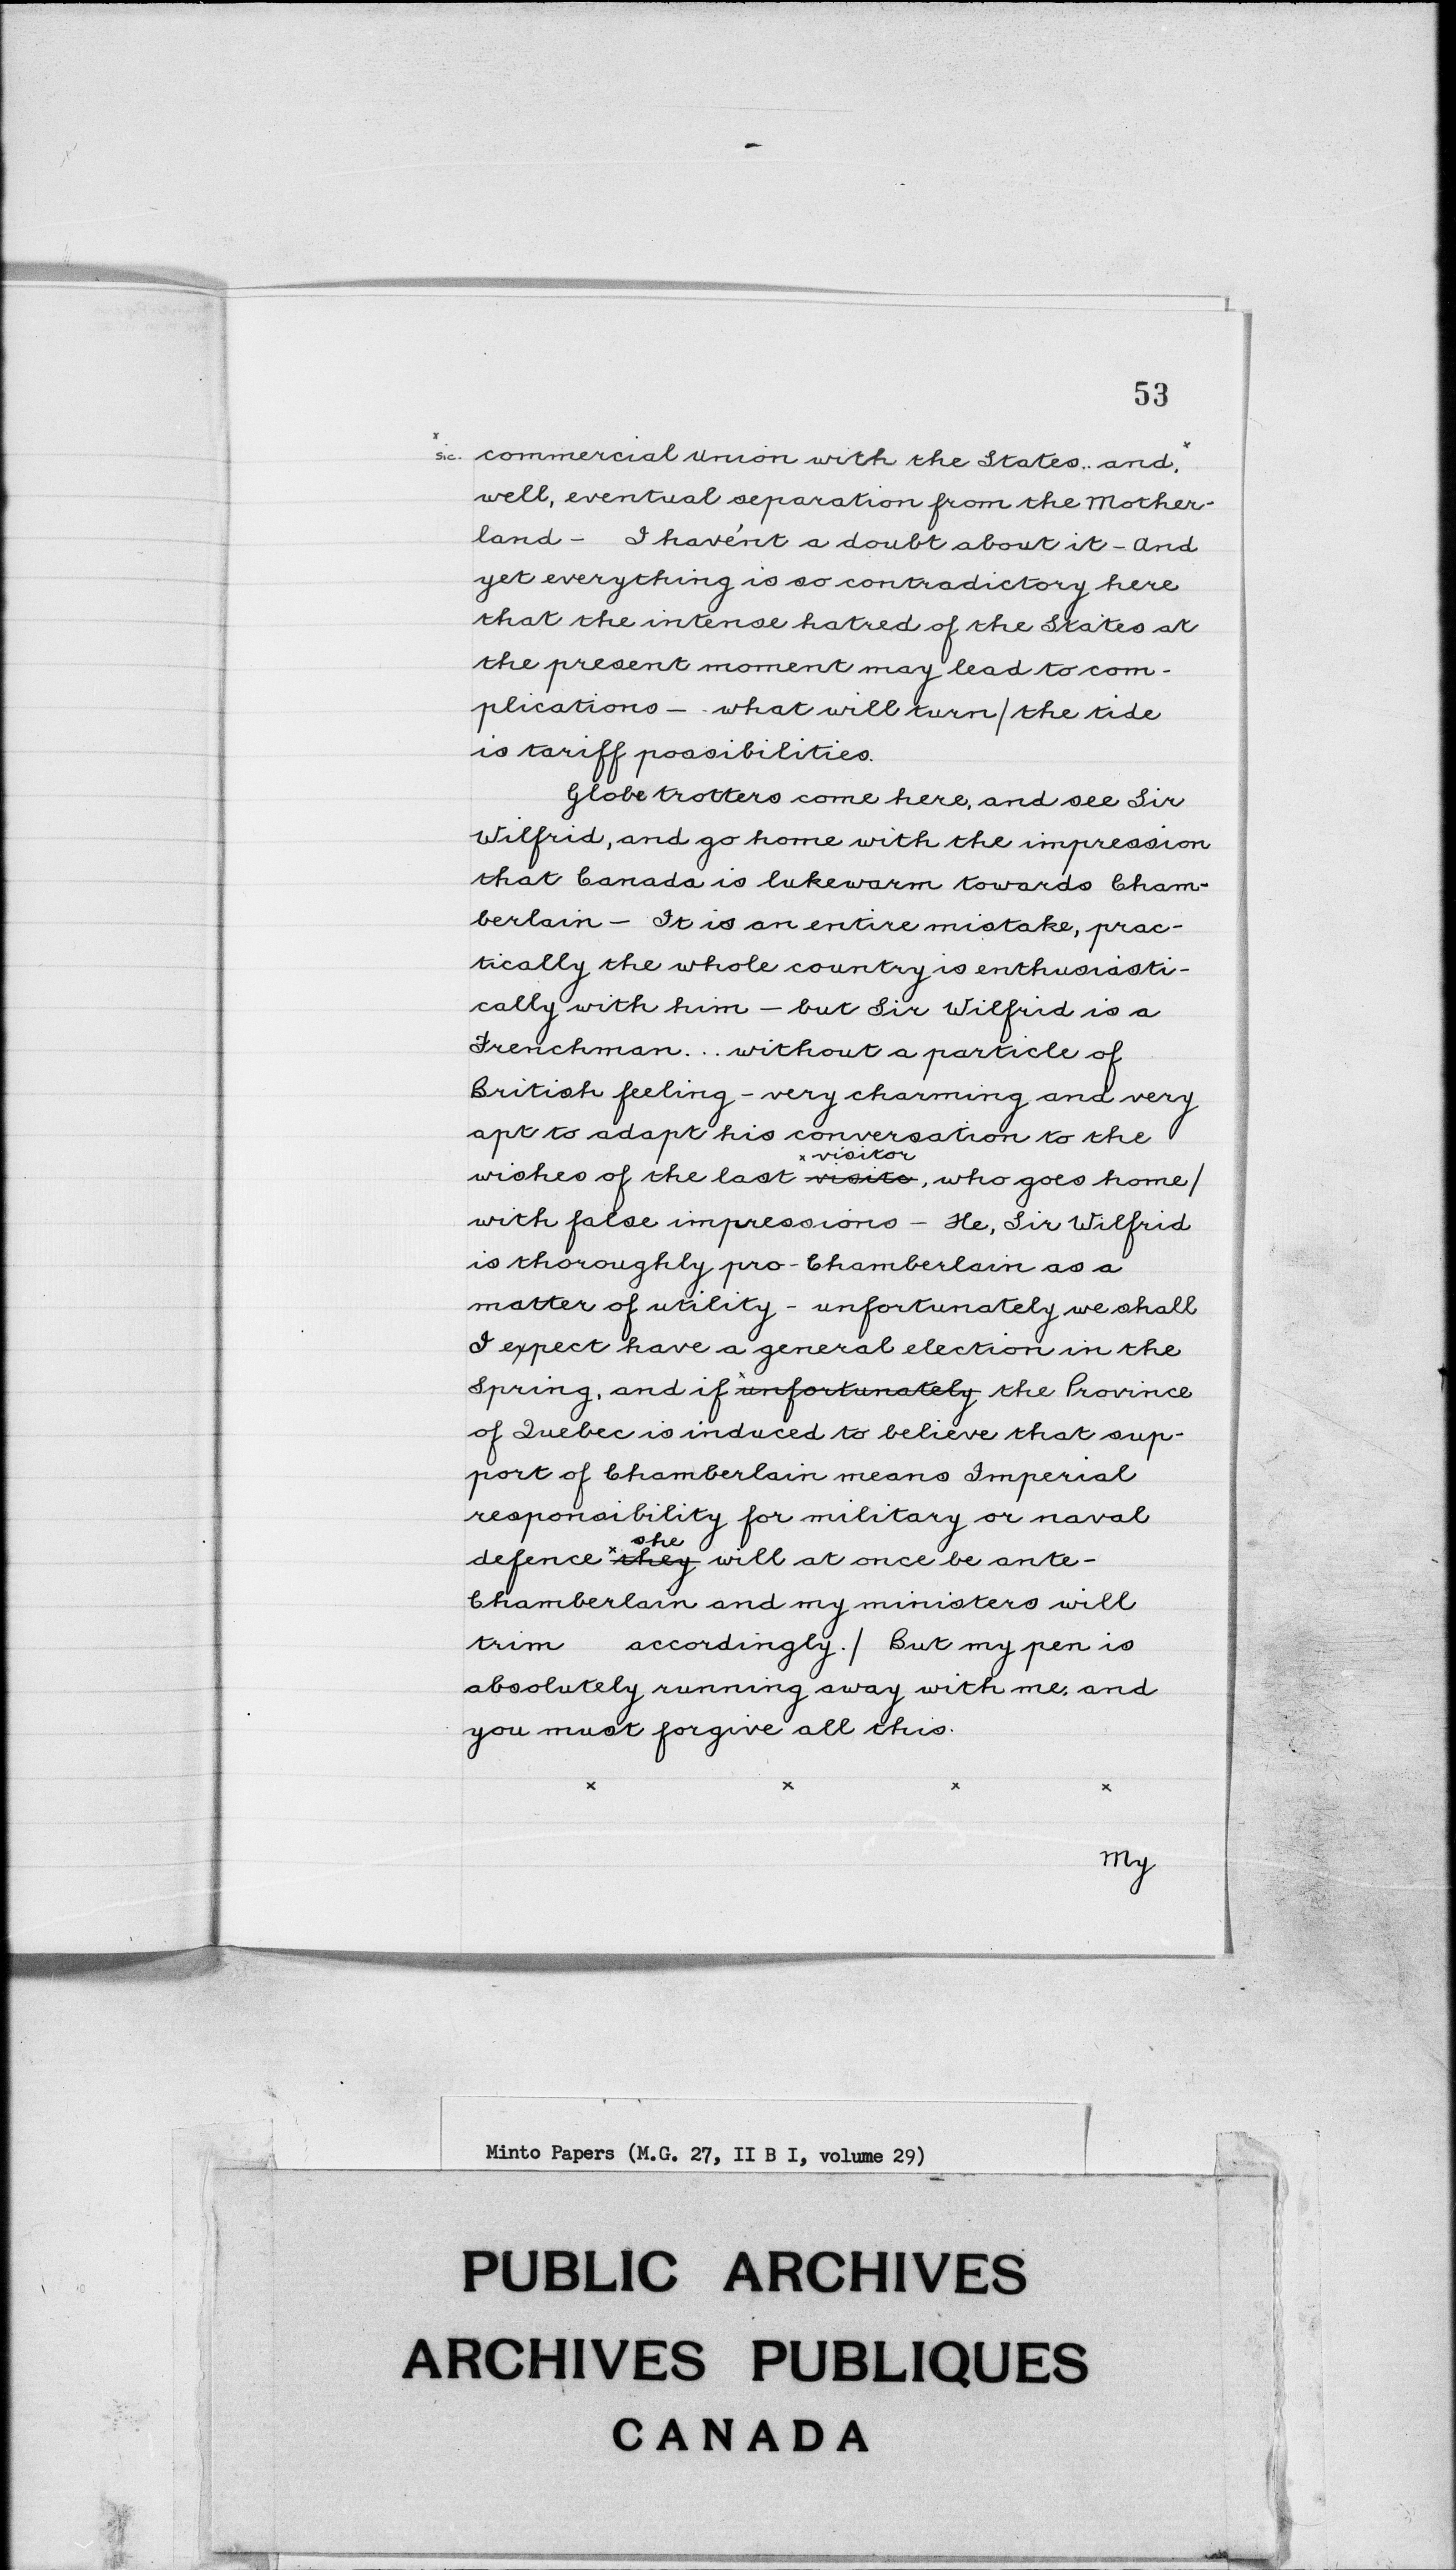 53
x
sic. commercial union with the States.. and, x
well, eventual separation from the Mother-
land - I have'nt a doubt about it - And
yet everything is so contradictory here
that the intense hatred of the States at
the present moment may lead to com-
plications - what will turn / the tide
is tariff possibilities.
Globe trotters come here, and see Sir
Wilfrid, and go home with the impression
that Canada is lukewarm towards Cham-
berlain - It is an entire mistake, prac-
tically the whole country is enthusiasti-
cally with him - but Sir Wilfrid is a
Frenchman... without a particle of
British feeling - very charming and very
apt to adapt his conversation to the
x visitor
wishes of the last visits, who goes home /
with false impressions - He, Sir Wilfrid
is thoroughly pro-Chamberlain as a
matter of utility - unfortunately we shall
I expect have a general election in the
Spring, and if x unfortunately the Province
of Quebec is induced to believe that sup-
port of Chamberlain means Imperial
responsibility for military or naval
she
defence x they will at once be ante-
Chamberlain and my ministers will
trim accordingly. / But my pen is
absolutely running away with me, and
you must forgive all this.
x x x x
My
Minto Papers (M.G. 27, II B I, volume 29)
PUBLIC ARCHIVES
ARCHIVES PUBLIQUES
CANADA